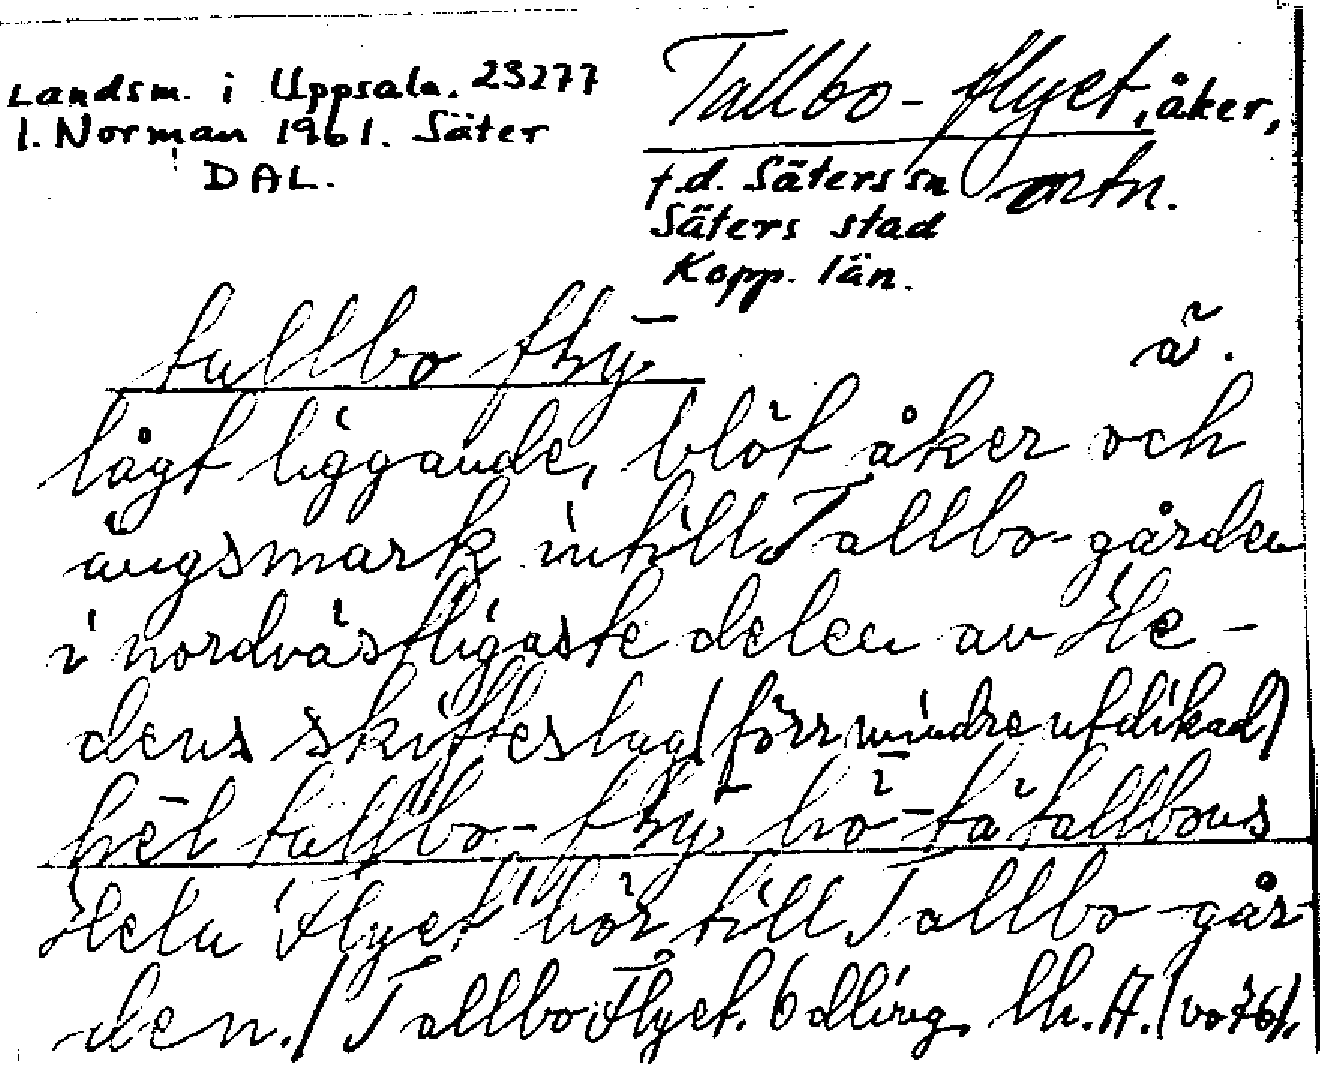 Landsm. i Uppsala. 23277
I. Norman 1961. Säter
DAL.
Tallbo-flyet, åker,
f.d. Säters sn
Säters stad
Kopp. län.
tallbo flȳ
lågt liggande, blöt åker och
ängsmark intill Tallbo-gården
i nordvästligaste delen av He-
dens skifteslag (förr mindre utdikad)
hēl tallbo-flȳ hȫ tä tallbons
Hela "Flyet" hör till Tallbo-går-
den./ Tallbo Flyet. Odling. lh. A.